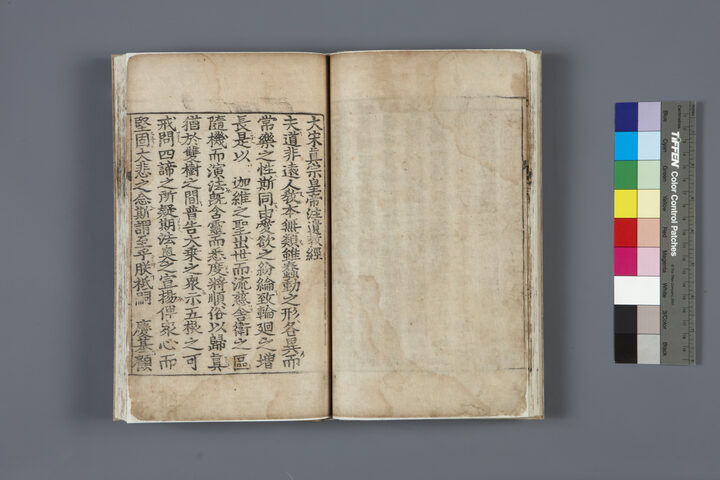 大宋真宗皇帝注遺教經
夫道非遠人教本無類雖蠢動之形各異而
常樂之性斯同由愛欲之紛綸致輪廻之增
長是以 迦維之聖出世而流慈舍衛之區
隨機而演法旣含靈而悉度將順俗以歸真
猶於雙樹之間普告大乘之衆示五根之可
戒問四諦之所疑期法奧之宣揚俾衆心而
堅固大悲之念斯謂至乎朕祗嗣 慶基顧
TIFFEN Color Control Patches
Blue
Cyan
Green
Yellow
Red
Magenta
White
3/Color
Black